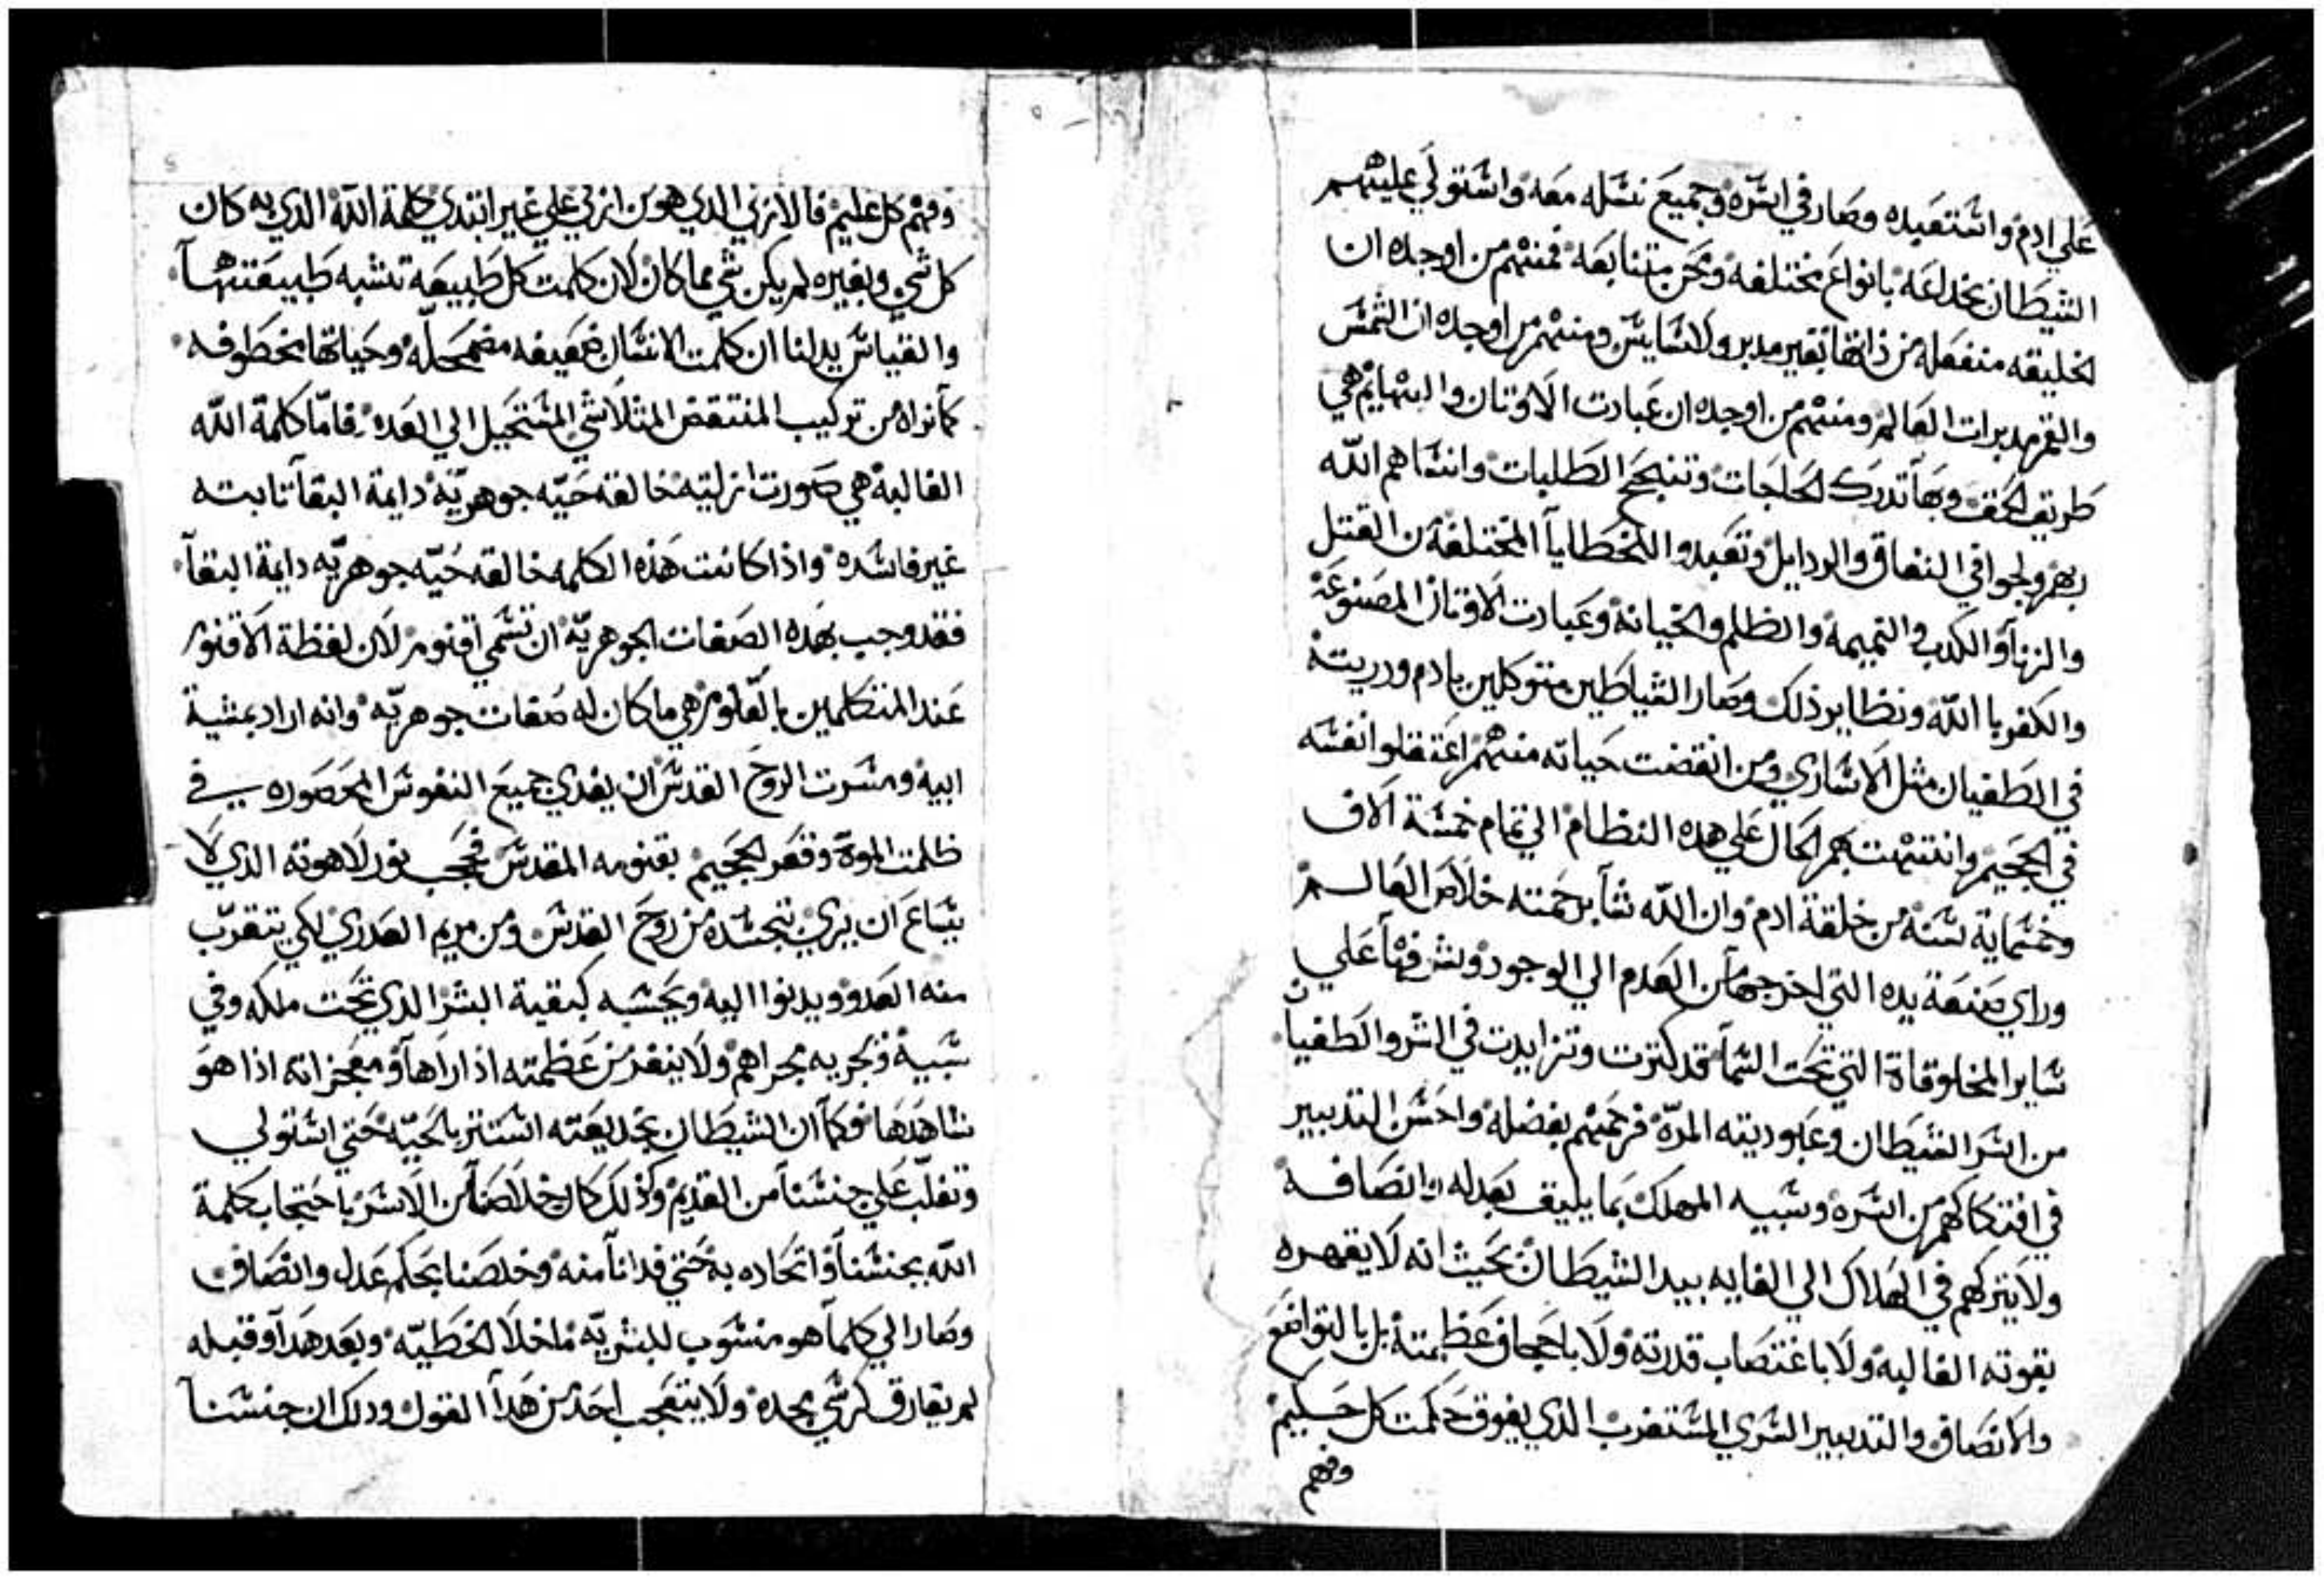 علي ادم واستعبده وصار في اسره وجميع نسله معه واستولي عليهم
الشيطان بخداعه بانواع مختلفه ومحن متتابعه فمنهم من اوجده ان
الخليقه منفعله من ذاتها بغير مدبر ولا سايس ومنهم من اوجده ان الشمس
والقمر مدبرات العالم ومنهم من اوجده ان عبادت الاوتان والبهايم هي
طريق الحق وبها تدرك الحاجات وتنجح الطلبات وانساهم الله
ربهم ولجوا في النفاق والردايل وتعبدوا للخطايا المختلفة من القتل
والزنا والكدب والنميمة والظلم والخيانة وعبادت الاوتان المصنوعة
والكفر با الله ونظاير ذلك وصار الشياطين متوكلين بادم ودريته
في الطغيان مثل الاساري ومن انقضت حياته منهم اعتقلوا نفسه
في الجحيم وانتهت بهم الحال علي هده النظام الي تمام خمسة الاف
وخمسماية سنة من خلقة ادم وان الله شا برحمته خلاص العالم
وراي صنعة يده التي اخرجها من العدم الي الوجود وشرفها علي
ساير المخلوقاة التي تحت السما قد كترت وتزايدت في الشر والطغيان
من اسر الشيطان وعبوديته المرة فرحمهم بفضله واحسن التدبير
في افتكاكهم من اسره وسبيه المهلك بما يليق بعدله وانصافه
ولا يتركهم في الهلاك الي الغايه بيد الشيطان بحيث انه لا يقهره
بقوته الغالبه ولا باغتصاب قدرته ولا باجحاف عظمته بل بالتواضع
والانصاف والتدبير السري المستغرب الذي يفوق حكمت كل حكيم
وفهم
وفهم كل عليم فالازلي الدي هو من ازلي علي غير ابتدي كلمة الله الذي به كان
كل شي وبغيره لم يكن شي مما كان لان كلمت كل طبيعه تشبه طبيعتها
والقياس يدلنا ان كلمت الانسان ضعيفه مضمحله وحياتها مخطوفه
كما نراه من تركيب المنتقض المتلاشي المستحيل الي العدم فاما كلمة الله
الغالبة هي صورت ازليته خالقه حيه جوهرية دايمة البقا تابته
غير فاسده واذا كانت هذه الكلمه خالقه حيه جوهريه دايمة البقا
فقد وجب بهده الصفات الجوهرية ان تسمي اقنوم لان لفظة الاقنوم
عند المتكلمين بالعلوم هي ما كان له صفات جوهريه وانه اراد بمشية
ابيه ومسرت الروح القدس ان يفدي جميع النفوس المحصوره في
ظلمت الموة وقعر الجحيم بقنومه المقدس فحجب نور لاهوته الذي لا
يساع ان يري بتجسده من روح القدس ومن مريم العدري لكي يتقرب
منه العدو ويدنوا اليه ويحسبه كبقية البشر الدي تحت ملكه وفي
سبية فيجريه مجراهم ولا ينفر من عظمته اذا راها ومعجزاته اذا هو
شاهدها فكما ان الشيطان بخديعته استتر بالحيه حتي استولي
وتغلب علي جنسنا من القديم وكذلك كان خلاصنا من الاسر باحتجاب كلمة
الله بجنسنا واتحاده به حتي فدانا منه وخلصنا بحكم عدل وانصاف
وصار الي كلما هو منسوب للبشريه ما خلا الخطيه وبعد هدا وقبله
لم يفارق كرسي مجده ولا يتعجب احد من هدا القول ودلك ان جنسنا